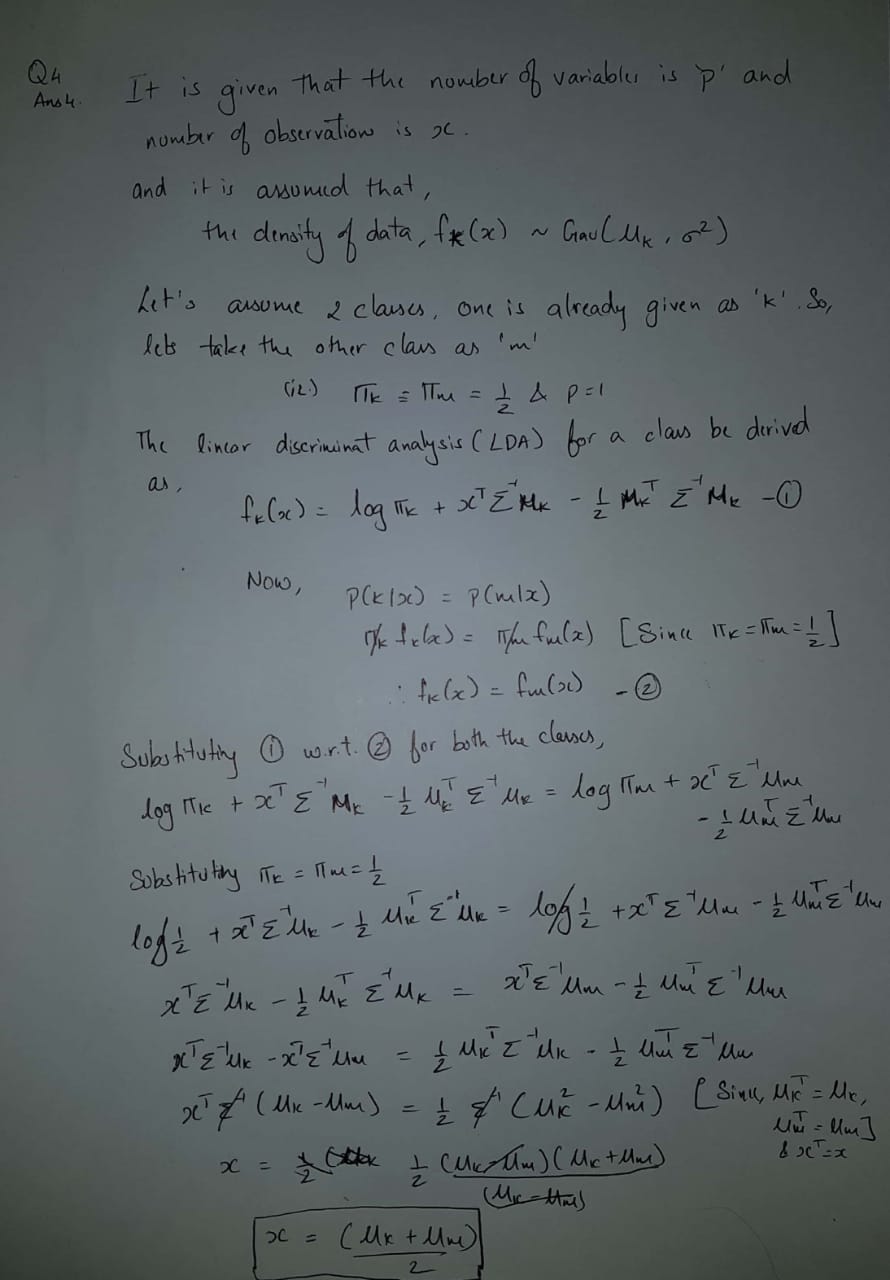 Q4
Ans 4. It is given that the number of variables is 'p' and
number of observation is x.
and it is assumed that,
the density of data, fk(x) ~ Gau(μk, σ²)
Let's assume 2 classes, one is already given as 'k'. So,
lets take the other class as 'm'
(ie.) πk = πm = 1/2 & p=1
The linear discriminat analysis (LDA) for a class be derived
as,
fk(x) = log πk + xᵀ Σ⁻¹ μk - 1/2 μkᵀ Σ⁻¹ μk -①
Now, P(k|x) = P(m|x)
πk fk(x) = πm fm(x) [Since πk = πm = 1/2]
∴ fk(x) = fm(x) -②
Substituting ① w.r.t. ② for both the classes,
log πk + xᵀ Σ⁻¹ μk - 1/2 μkᵀ Σ⁻¹ μk = log πm + xᵀ Σ⁻¹ μm
- 1/2 μmᵀ Σ⁻¹ μm
Substituting πk = πm = 1/2
log 1/2 + xᵀ Σ⁻¹ μk - 1/2 μkᵀ Σ⁻¹ μk = log 1/2 + xᵀ Σ⁻¹ μm - 1/2 μmᵀ Σ⁻¹ μm
xᵀ Σ⁻¹ μk - 1/2 μkᵀ Σ⁻¹ μk = xᵀ Σ⁻¹ μm - 1/2 μmᵀ Σ⁻¹ μm
xᵀ Σ⁻¹ μk - xᵀ Σ⁻¹ μm = 1/2 μkᵀ Σ⁻¹ μk - 1/2 μmᵀ Σ⁻¹ μm
xᵀ Σ⁻¹ (μk - μm) = 1/2 Σ⁻¹ (μk² - μm²) [Since, μkᵀ = μk,
μmᵀ = μm]
& xᵀ = x
x = 1/2 (μk - μm)(μk + μm)
(μk - μm)
x = (μk + μm)
2